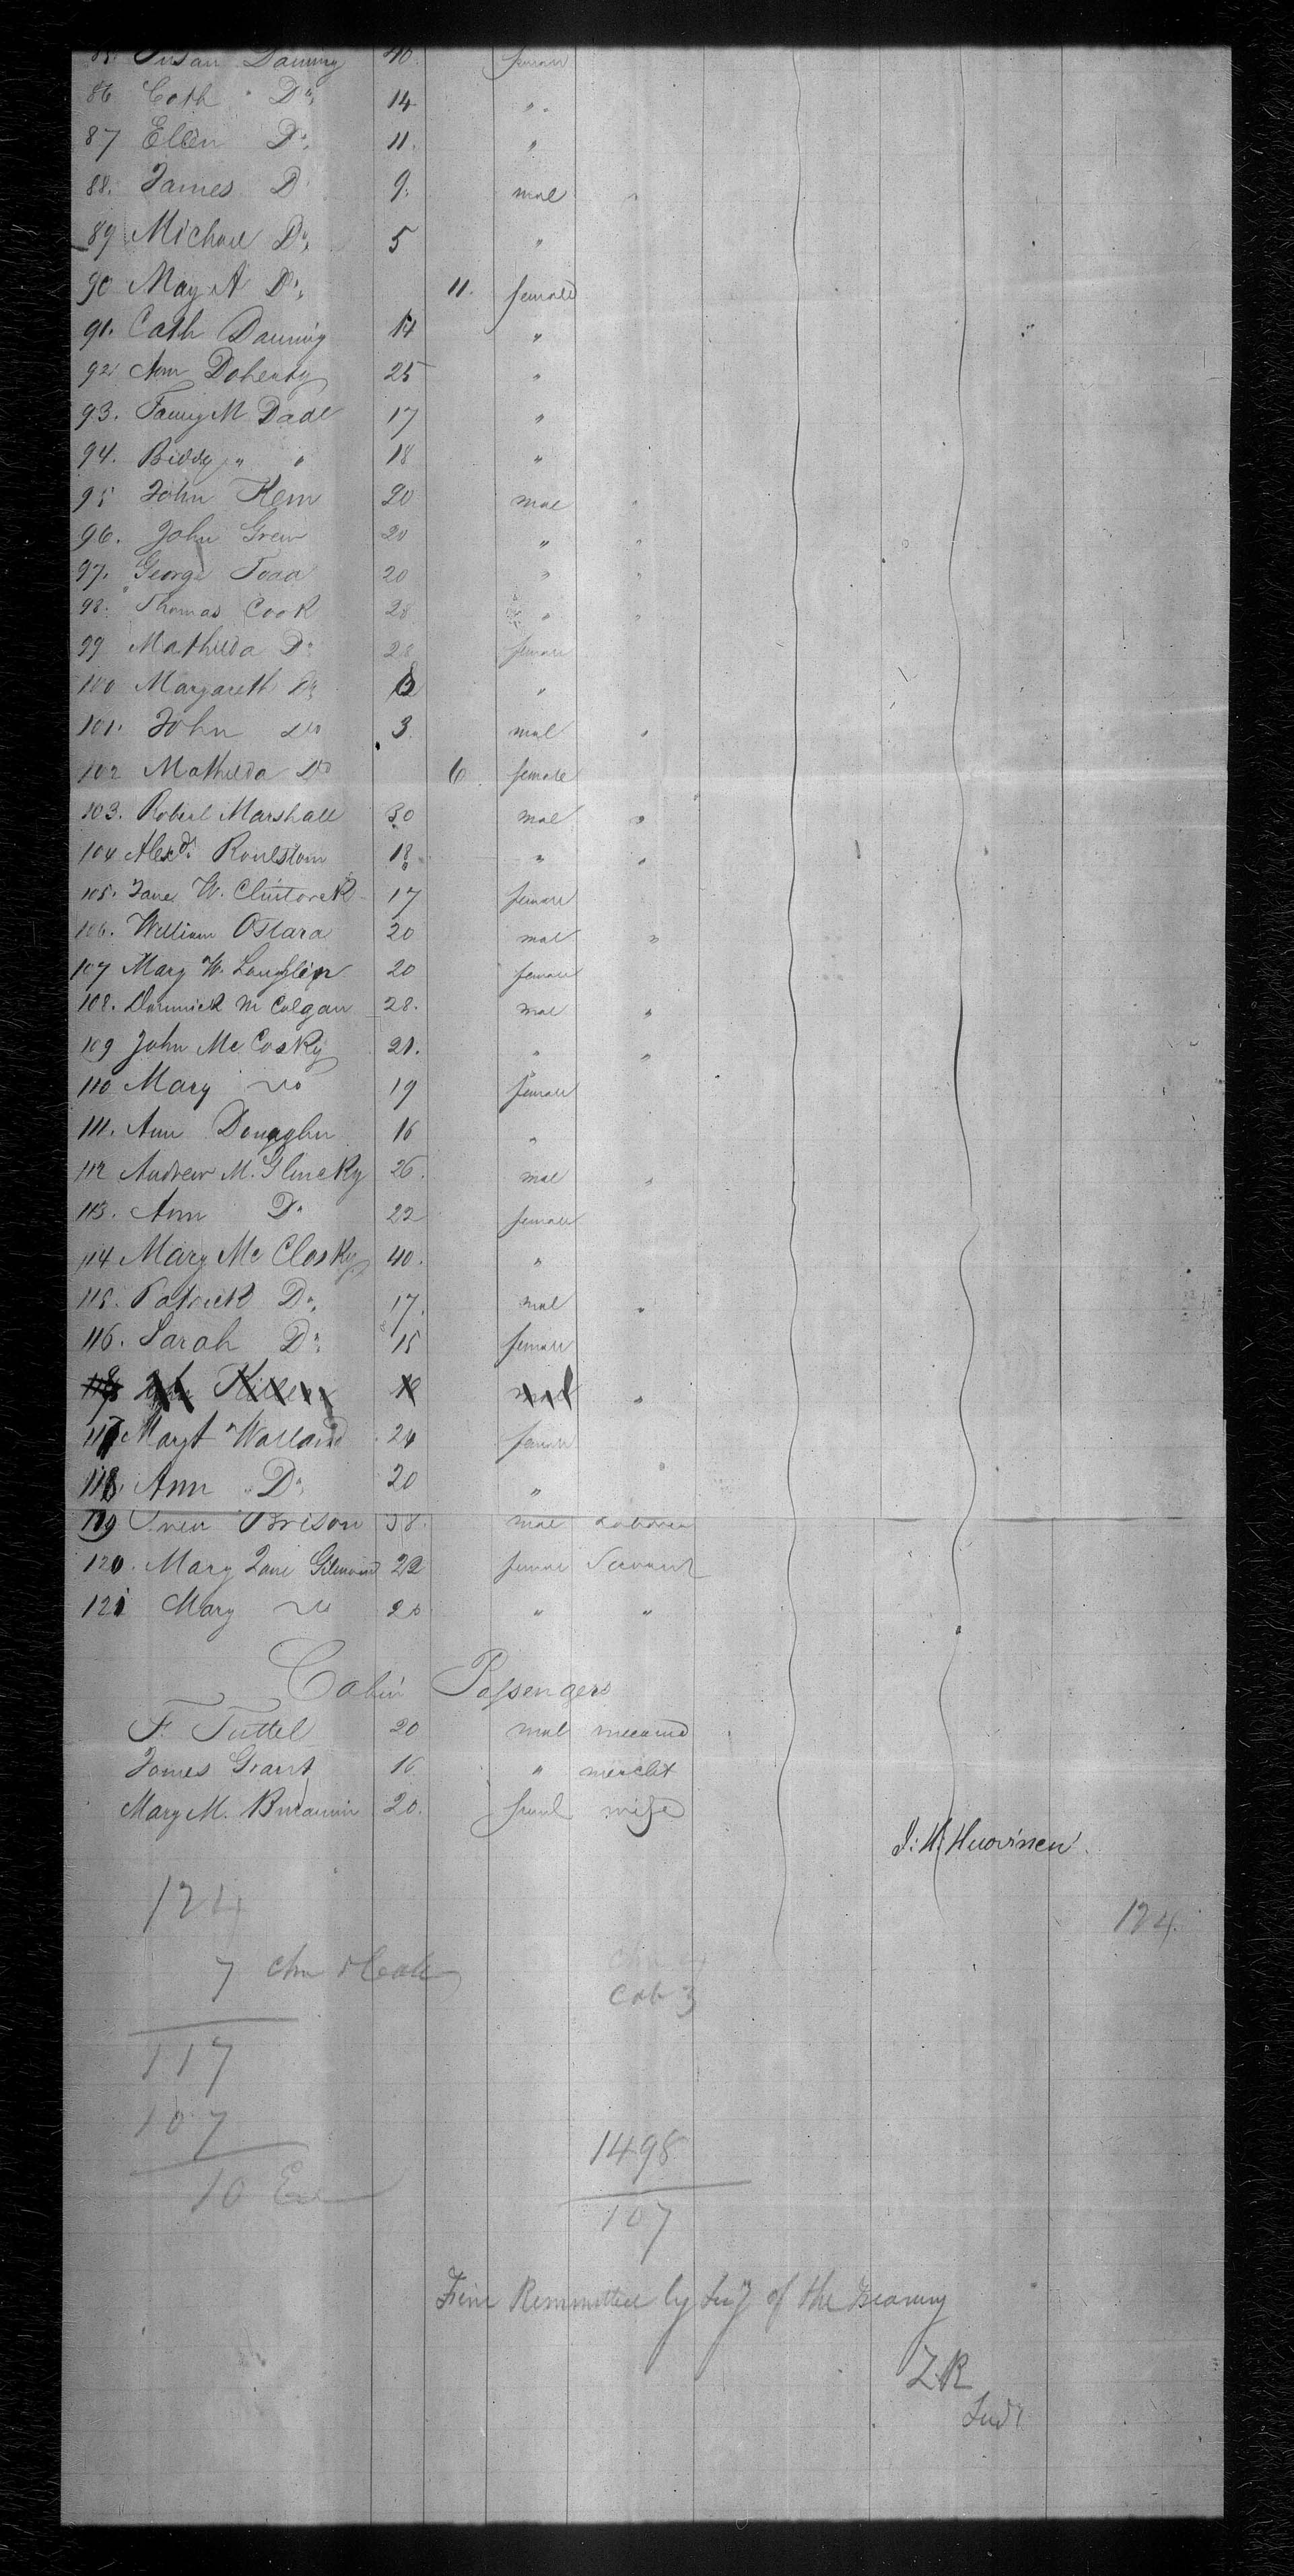 85. Susan Dauning 40. female
86 Cath " Do, 14 "
87 Ellen Do, 11. "
88. James D 9. mal "
89 Michael Do, 5 "
90 May A Do, 11. female
91. Cath Dauning 14 "
92 Ann Doherty 25 "
93. Fanny M Dade 17 "
94. Biddy " " 18 "
95 John Kem 20 mal "
96. John Grew 20 " "
97. George Todd 20 " "
98. Thomas Cook 28 " "
99 Mathilda Do 28 female
100 Margareth Do "
101. John do 3. mal "
102 Mathilda Do 6. female
103. Robert Marshall 30 mal "
104 Alexdr. Roulstom 18 " "
105. Jane W. Clintock 17 female
106. William OHara 20 mal "
107 Mary W. Laughlin 20 female
108. Dominick M Colgan 28. mal "
109 John Mc Cosky 21. " "
110 Mary do 19 female
111. Ann Donagher 16 "
112 Andrew M. Glincky 26. mal "
113. Ann Do 22 female
114 Mary Mc Closky 40. "
115. Patrick Do, 17. mal "
116. Sarah Do, 15 female
mal "
117 Margt Walland 24 female
118. Ann Do, 20 "
119 Brison 38. mal Laborer
120. Mary Jane 22 female Servant
121 Mary do 20 " "
Cabin Passengers
F. Tuttel 20 mal
James Grant 16 " mercht
Mary M. 20. feml wife
J. H. Huovinen.
124
124.
7 chn
Cab 3
117
107
10
1498
107
Fine Remmitted by Secy of the Treasury
Z.R